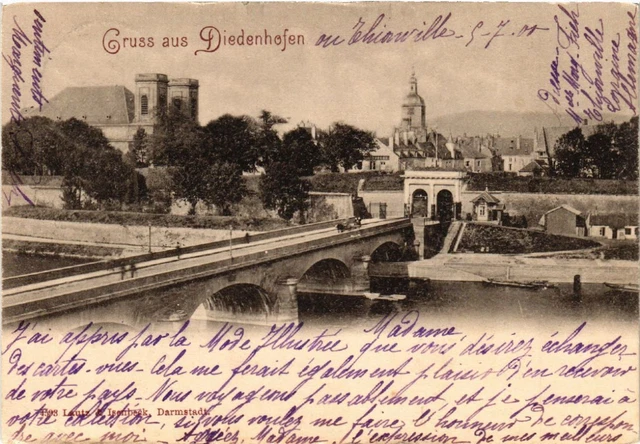 Gruss aus Diedenhofen
ou Thionville - 5-7. 00
Madame
J'ai appris par la Mode Illustrée que vous désirez échanger
des cartes-vues. Cela me ferait également plaisir d'en recevoir
de votre pays. Nous voyageons passablement, et je penserai à
7498 Lautz & Isenbeck, Darmstadt.
votre collection, si vous voulez me faire l'honneur de correspon
dre avec moi. Agréez, Madame, l'expression de mes meilleurs
sentiments
Thionville
Lorraine
Allemagne